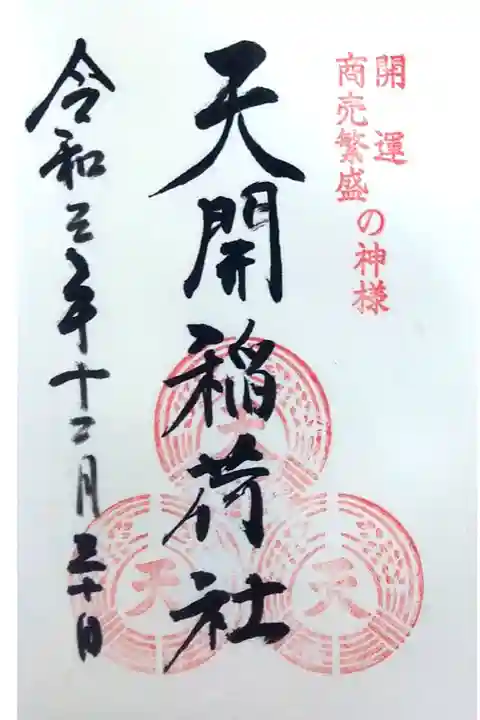 開運
商売繁盛
の神様
天開稲荷社
令和三年十二月三十日
天
天